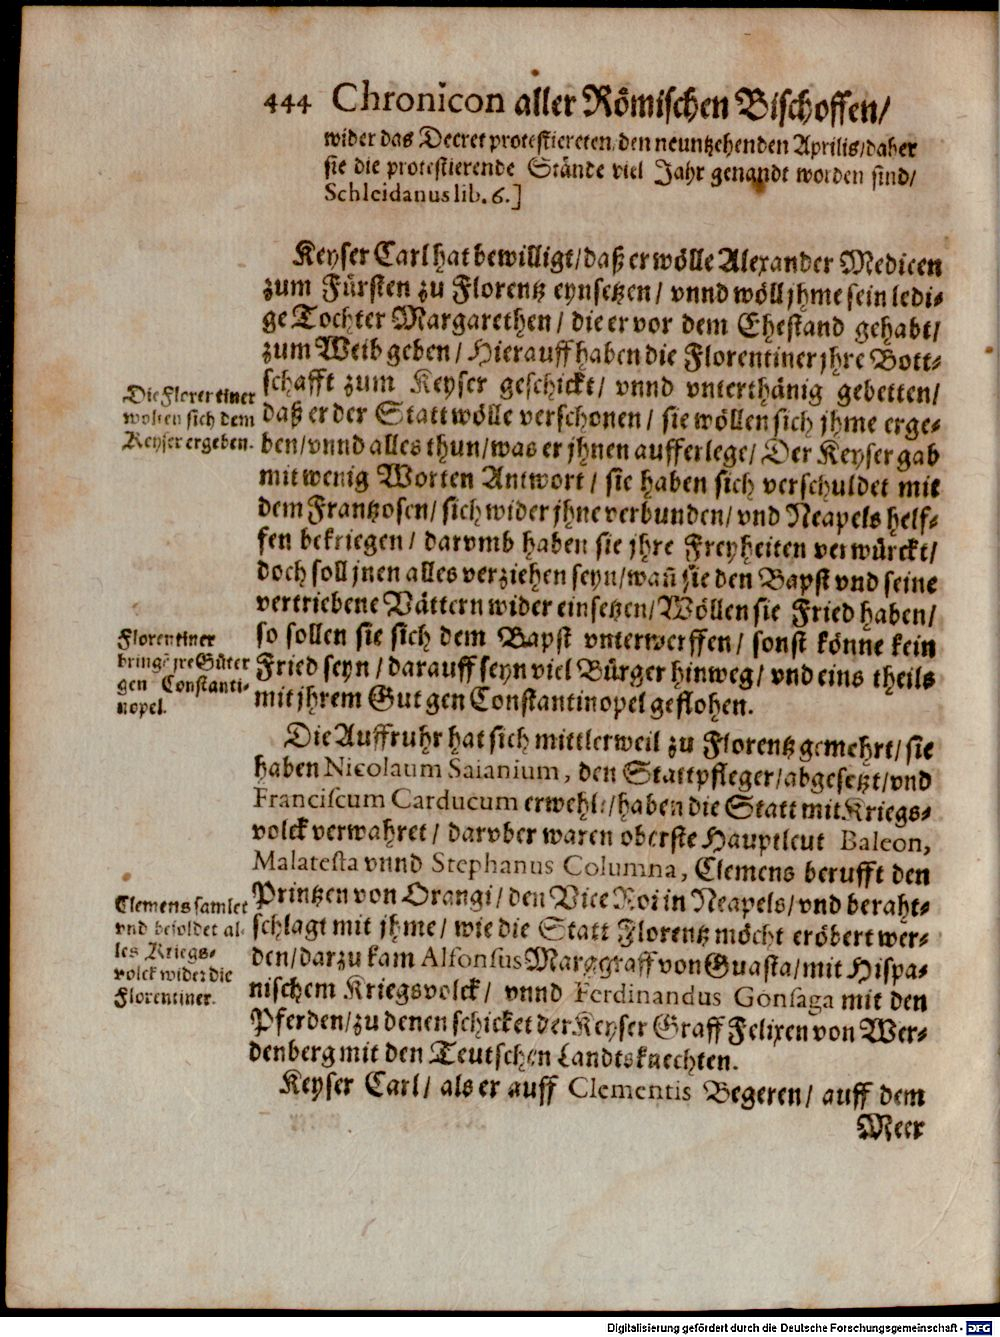 444 Chronicon aller Römischen Bischoffen/
wider das Decret protestiereten/den neuntzehenden Aprilis/daher
sie die protestierende Stände viel Jahr genandt worden sind/
Schleidanus lib. 6.]
Keyser Carl hat bewilligt/daß er wölle Alexander Medicen
zum Fürsten zu Florentz eynsetzen/ vnnd wöll jhme sein ledi-
ge Tochter Margarethen/ die er vor dem Ehestand gehabt/
zum Weib geben/ Hierauff haben die Florentiner jhre Bott-
schafft zum Keyser geschickt/ vnnd vnterthänig gebetten/
daß er der Statt wölle verschonen/ sie wöllen sich jhme erge-
ben/vnnd alles thun/was er jhnen aufferlege/ Der Keyser gab
mit wenig Worten Antwort/ sie haben sich verschuldet mit
dem Frantzosen/ sich wider jhne verbunden/ vnd Neapels helf-
fen bekriegen/ darvmb haben sie jhre Freyheiten verwürckt/
doch soll jnen alles verziehen seyn/wañ sie den Bapst vnd seine
vertriebene Vättern wider einsetzen/Wöllen sie Fried haben/
so sollen sie sich dem Bapst vnterwerffen/ sonst könne kein
Fried seyn/ darauff seyn viel Bürger hinweg/ vnd eins theils
mit jhrem Gut gen Constantinopel geflohen.
Die Florentiner
wolten sich dem
Keyser ergeben.
Florentiner
bringē jre Güter
gen Constanti-
nopel.
Die Auffruhr hat sich mittlerweil zu Florentz gemehrt/ sie
haben Nicolaum Saianium, den Stattpfleger/abgesetzt/vnd
Franciscum Carducum erwehlt/haben die Statt mit Kriegs-
volck verwahret/ darvber waren oberste Hauptleut Baleon,
Malatesta vnnd Stephanus Columna, Clemens berufft den
Printzen von Orangi/ den Vice Roi in Neapels/ vnd beraht-
schlagt mit jhme/ wie die Statt Florentz möcht eröbert wer-
den/darzu kam Alfonsus Marggraff von Guasta/mit Hispa-
nischem Kriegsvolck/ vnnd Ferdinandus Gonsaga mit den
Pferden/zu denen schicket der Keyser Graff Felixen von Wer-
denberg mit den Teutschen Landtsknechten.
Clemens samlet
vnd besoldet al-
les Kriegs-
volck wider die
Florentiner.
Keyser Carl/ als er auff Clementis Begeren/ auff dem
Meer
Digitalisierung gefördert durch die Deutsche Forschungsgemeinschaft - DFG